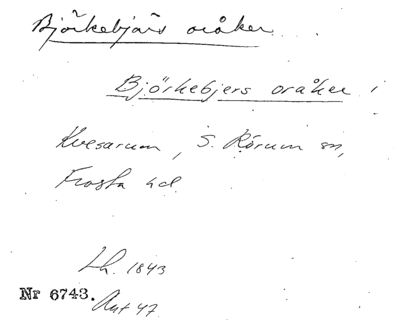 Björkebjärs oråker
Björkebjers oråker i
Kvesarum, S. Rörum sn,
Frosta hd
Lh. 1843
Nr 6743.
Akt 47